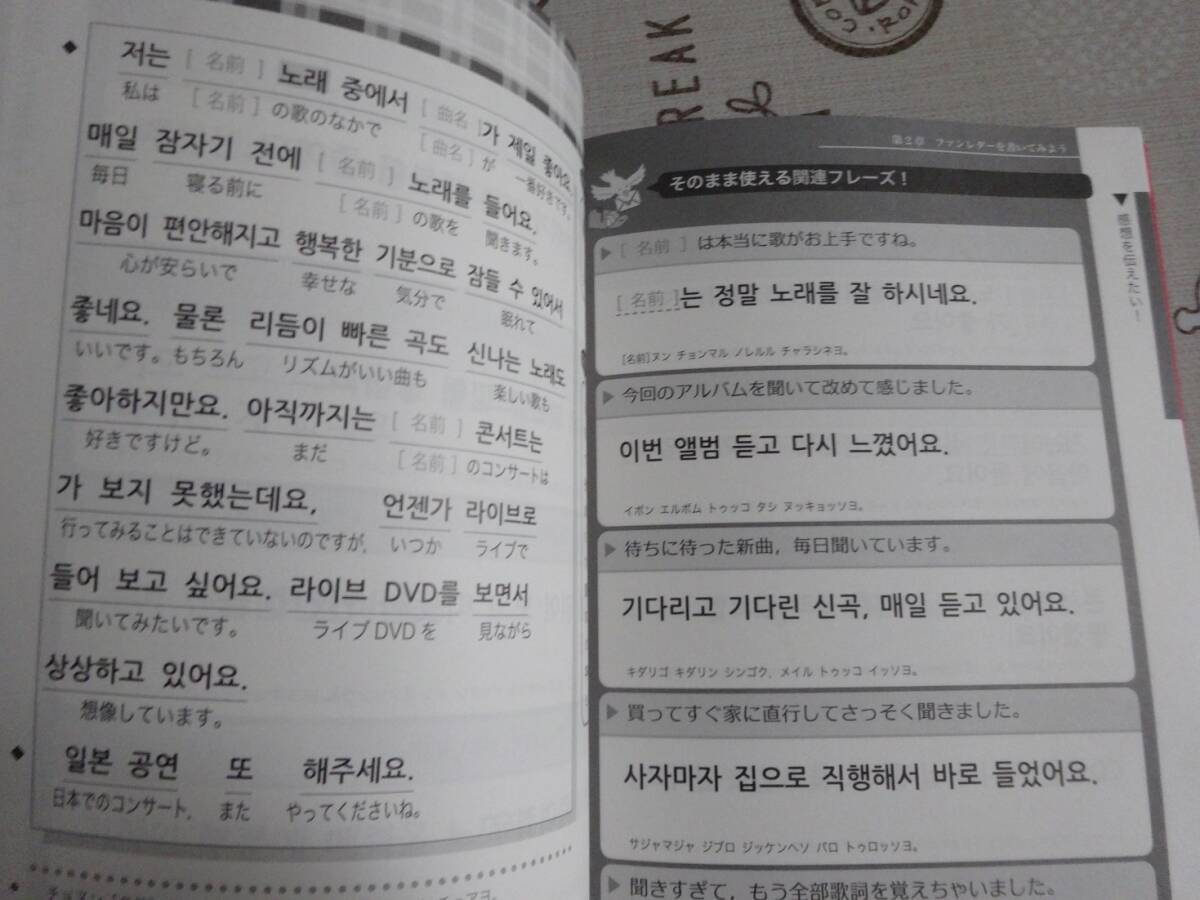 저는 [ 名前 ] 노래 중에서 [ 曲名 ]가 제일 좋아요.
私は [ 名前 ] の歌のなかで [ 曲名 ] が 一番好きです。
매일 잠자기 전에 [ 名前 ] 노래를 들어요.
毎日 寝る前に [ 名前 ] の歌を 聞きます。
마음이 편안해지고 행복한 기분으로 잠들 수 있어서
心が安らいで 幸せな 気分で 眠れて
좋네요. 물론 리듬이 빠른 곡도 신나는 노래도
いいです。もちろん リズムがいい曲も 楽しい歌も
좋아하지만요. 아직까지는 [ 名前 ] 콘서트는
好きですけど。 まだ [ 名前 ] のコンサートは
가 보지 못했는데요, 언젠가 라이브로
行ってみることはできていないのですが, いつか ライブで
들어 보고 싶어요. 라이브 DVD를 보면서
聞いてみたいです。 ライブ DVD を 見ながら
상상하고 있어요.
想像しています。
일본 공연 또 해주세요.
日本でのコンサート, また やってくださいね。
第2章 ファンレターを書いてみよう
そのまま使える関連フレーズ！
[ 名前 ] は本当に歌がお上手ですね。
[ 名前 ]는 정말 노래를 잘 하시네요.
[名前]ヌン チョンマル ノレルル チャラシネヨ。
今回のアルバムを聞いて改めて感じました。
이번 앨범 듣고 다시 느꼈어요.
イボン エルボム トゥッコ タシ ヌッキョッソヨ。
待ちに待った新曲，毎日聞いています。
기다리고 기다린 신곡, 매일 듣고 있어요.
キダリゴ キダリン シンゴク, メイル トゥッコ イッソヨ。
買ってすぐ家に直行してさっそく聞きました。
사자마자 집으로 직행해서 바로 들었어요.
サジャマジャ ジブロ ジッケンヘソ バロ トゥロッソヨ。
聞きすぎて，もう全部歌詞を覚えちゃいました。
▼感想を伝えたい！
REAK